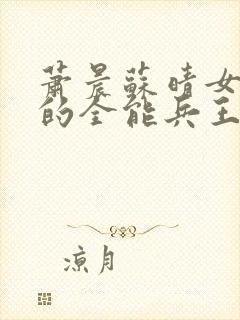 萧晨蘇晴女
的全能兵王
涼月